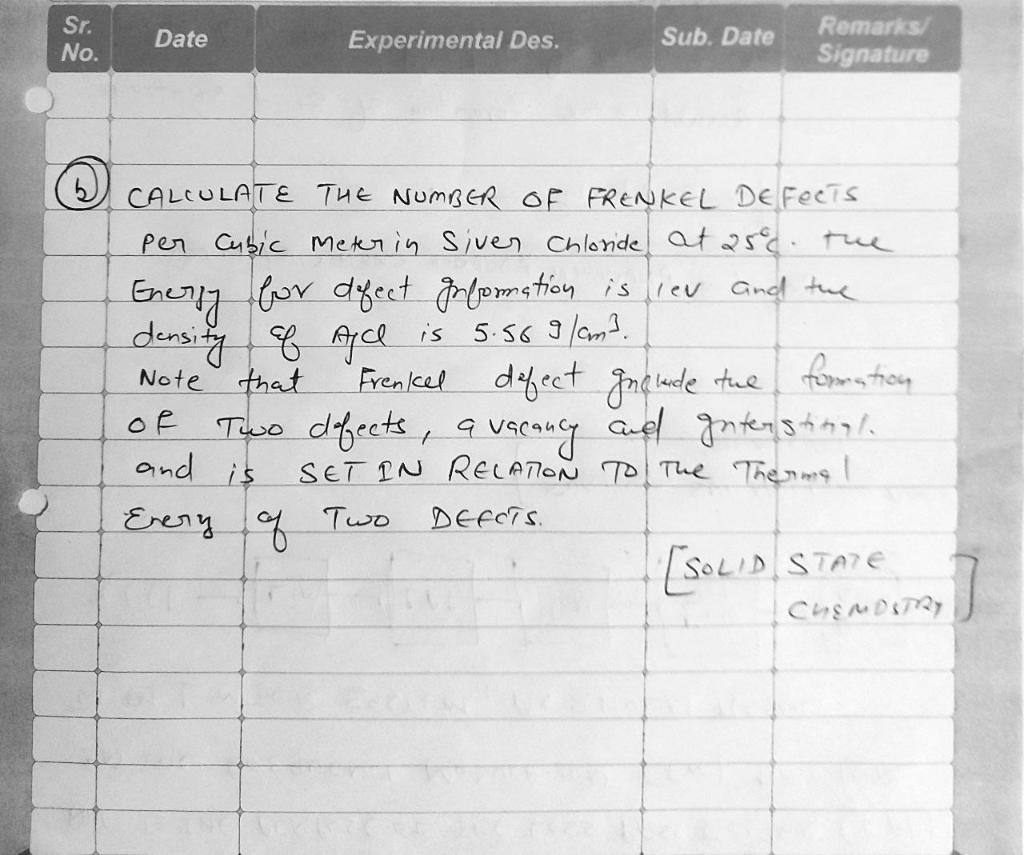 Sr. No. Date Experimental Des. Sub. Date Remarks/ Signature
b CALCULATE THE NUMBER OF FRENKEL DEFECTS
Per Cubic Meter in Siver Chloride at 25°C. The
Energy for defect Information is 1ev and the
density of AgCl is 5.56 g/cm³.
Note that Frenkel defect Include the formation
OF Two defects, a vacancy and Interstinal.
and is SET IN RELATION TO The Thermal
Enery of Two DEFECTS.
[SOLID STATE
CHEMOSTRY]